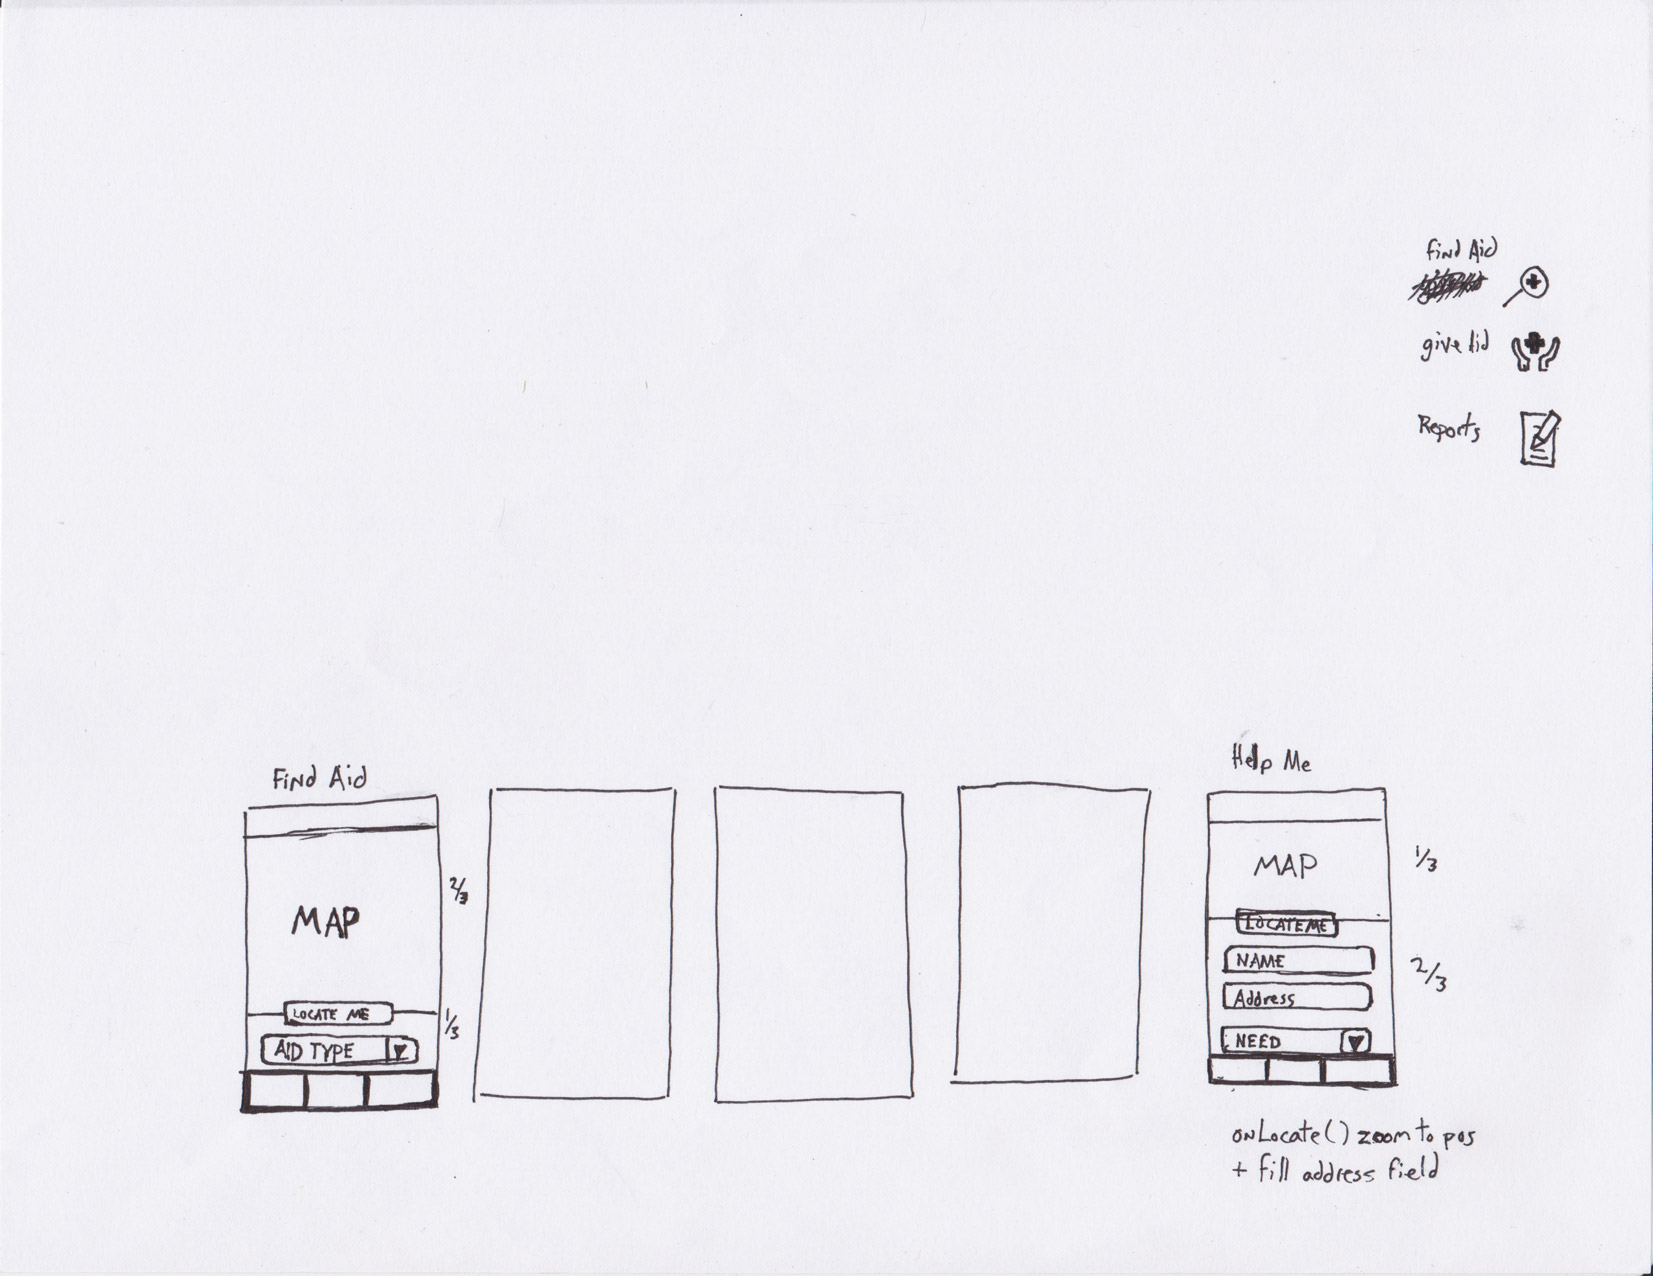 Find Aid
give Aid
Reports
Find Aid
2/3
MAP
LOCATE ME
1/3
AID TYPE
Help Me
1/3
MAP
LOCATE ME
NAME
2/3
Address
NEED
onLocate() zoom to pos
+ fill address field